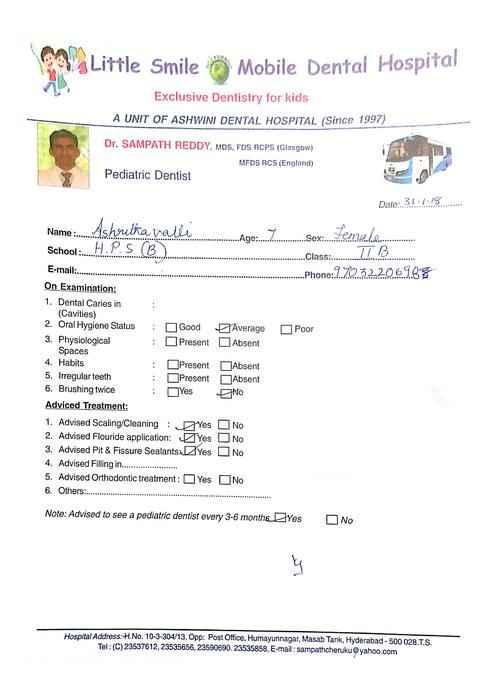 Little Smile Mobile Dental Hospital
Exclusive Dentistry for kids
A UNIT OF ASHWINI DENTAL HOSPITAL (Since 1997)
Dr. SAMPATH REDDY, MDS, FDS RCPS (Glasgow)
MFDS RCS (England)
Pediatric Dentist
Date: 31-1-18
Name: Ashrithavalli Age: 7 Sex: Female
School: H.P.S (B) Class: II B
E-mail: Phone:
On Examination:
1. Dental Caries in :
(Cavities)
2. Oral Hygiene Status : Good Average Poor
3. Physiological : Present Absent
Spaces
4. Habits : Present Absent
5. Irregular teeth : Present Absent
6. Brushing twice : Yes No
Adviced Treatment:
1. Advised Scaling/Cleaning : Yes No
2. Advised Flouride application: Yes No
3. Advised Pit & Fissure Sealants: Yes No
4. Advised Filling in....................
5. Advised Orthodontic treatment : Yes No
6. Others:
Note: Advised to see a pediatric dentist every 3-6 months Yes No
Hospital Address:-H.No. 10-3-304/13, Opp: Post Office, Humayunnagar, Masab Tank, Hyderabad - 500 028.T.S.
Tel : (C) 23537612, 23535656, 23590690. 23535858, E-mail : sampathcheruku@yahoo.com